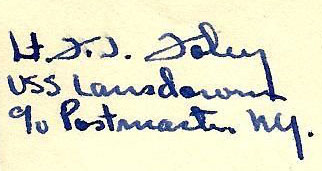 Lt. F. J. Foley
USS Lansdowne
c/o Postmaster N.Y.